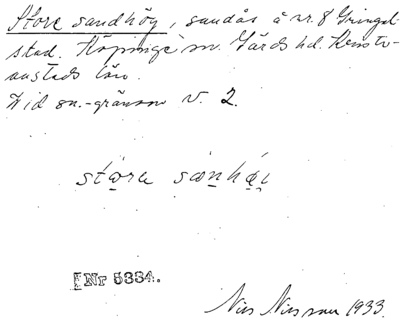 Store sandhög, sandås å nr. 8 Gringel-
stad. Köpinge sn. Gärds hd. Kristi-
anstads län.
Vid sn.-gränsen v. 2.
stora sanhöi
[Nr 5334.
Nils Nilsson 1933.